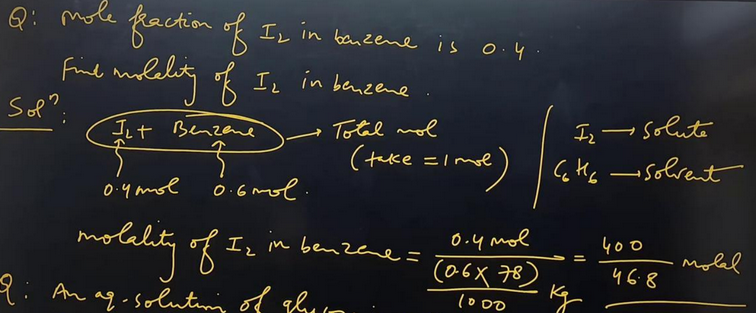 Q: Mole fraction of I₂ in benzene is 0.4.
Find molality of I₂ in benzene.
Solⁿ:
I₂ + Benzene → Total mol
(take = 1 mol)
0.4 mol 0.6 mol.
I₂ → solute
C₆H₆ → solvent
molality of I₂ in benzene = 0.4 mol / ((0.6 × 78) / 1000 Kg) = 400 / 46.8 molal
Q: An aq. solution of